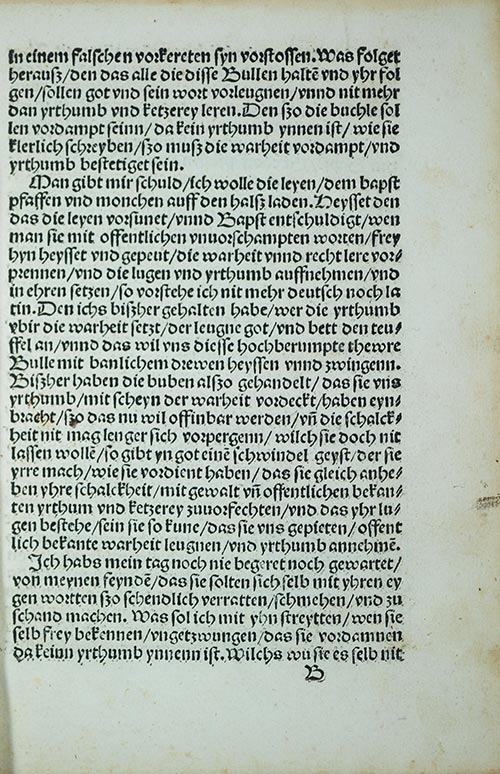 in einem falschen vorkereten syn vorstossen. Was folget
herausz/den das alle die disse Bullen haltē vnd yhr fol
gen/sollen got vnd sein wort vorleugnen/vnnd nit mehr
dan yrthumb vnd ketzerey leren. Den szo die buchle sol
len vordampt seinn/da kein yrthumb ynnen ist/wie sie
klerlich schreyben/szo musz die warheit vordampt/vnd
yrthumb bestetiget sein.
Man gibt mir schuld/ich wolle die leyen/dem bapst
pfaffen vnd monchen auff den halsz laden. Heysset den
das die leyen vorsunet/vnnd Bapst entschuldigt/wen
man sie mit offentlichen vnuorschampten worten/frey
hyn heysset vnd gepeut/die warheit vnnd recht lere vor⸗
prennen/vnd die lugen vnd yrthumb auffnehmen/vnd
in ehren setzen/so vorstehe ich nit mehr deutsch noch la
tin. Den ichs biszher gehalten habe/wer die yrthumb
vbir die warheit setzt/der leugne got/vnd bett den teu⸗
ffel an/vnnd das wil vns diesse hochberumpte thewre
Bulle mit banlichem drewen heyssen vnnd zwingenn.
Biszher haben die buben alszo gehandelt/das sie vns
yrthumb/mit scheyn der warheit vordeckt/haben eyn⸗
bracht/szo das nu wil offinbar werden/vn̄ die schalck⸗
heit nit mag lenger sich vorpergenn/wilch sie doch nit
lassen wollē/so gibt yn got einē schwindel geyst/der sie
yrre mach/wie sie vordient haben/das sie gleich anhe⸗
ben yhre schalckheit/mit gewalt vn̄ offentlichen bekan⸗
ten yrthum vnd ketzerey zuuorfechten/vnd das yhr lu⸗
gen bestehe/sein sie so kune/das sie vns gepieten/offent
lich bekante warheit leugnen/vnd yrthumb annehmē.
Ich habs mein tag noch nie begeret noch gewartet/
von meynen feyndē/das sie solten sich selb mit yhren ey
gen wortten szo schendlich verratten/schmehen/vnd zu
schand machen. Was sol ich mit yhn streytten/wen sie
selb frey bekennen/vngetzwungen/das sie vordamnen
da keinn yrthumb ynnenn ist. Wilchs wu sie es selb nit
B